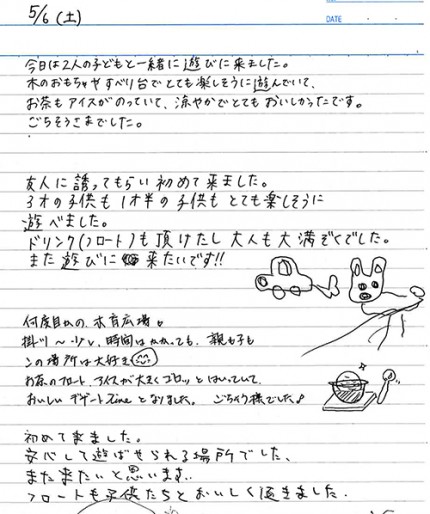 5/6(土)
DATE
今日は2人の子どもと一緒に遊びに来ました。
木のおもちゃやすべり台でとても楽しそうに遊んでいて、
お茶もアイスがのっていて、涼やかでとてもおいしかったです。
ごちそうさまでした。
友人に誘ってもらい初めて来ました。
3才の子供も1才半の子供もとても楽しそうに
遊べました。
ドリンク(フロート)も頂けたし大人も大満ぞくでした。
また遊びに来たいです!!
何度目かの、木育広場。
掛川〜少し、時間はかかっても、親も子も
この場所は大好き
お茶のフロート、アイスが大きくゴロッとはいっていて、
おいしいデザートtimeとなりました。ごちそう様でした♪
初めて来ました。
安心して遊ばせられる場所でした、
また来たいと思います。
フロートも子供たちとおいしく頂きました。